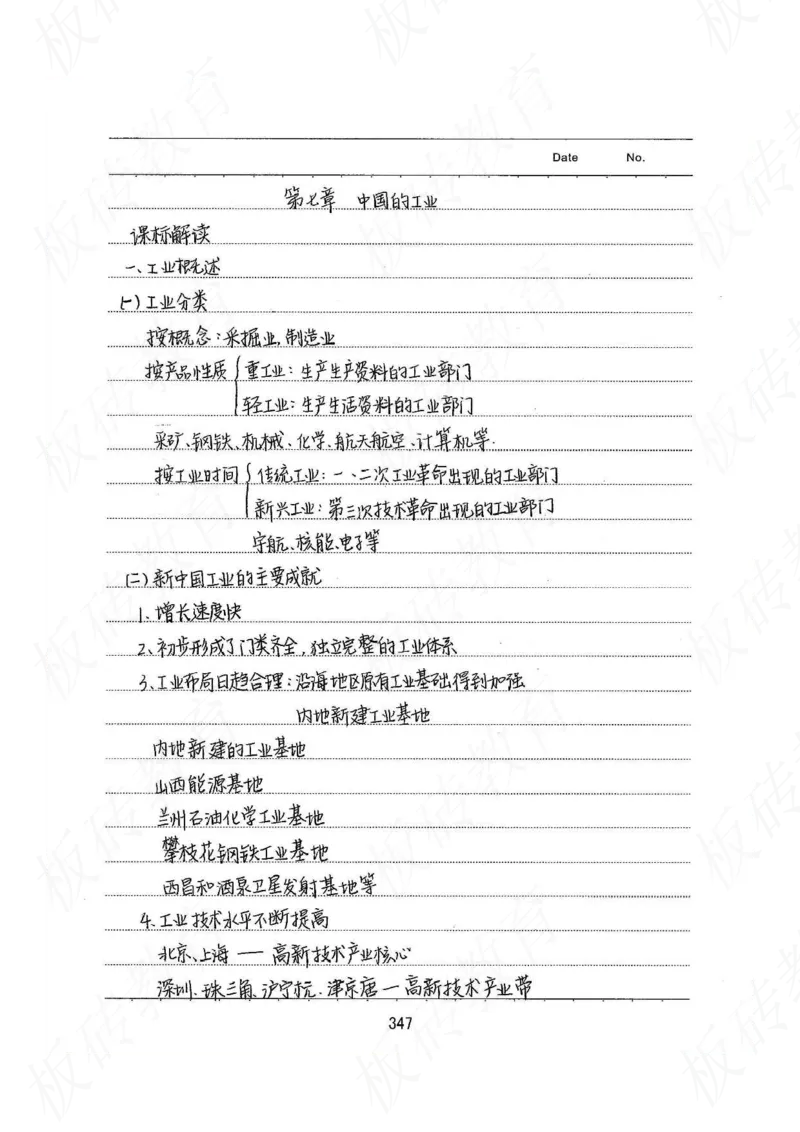 Date No.
第七章 中国的工业
课标解读
一、工业概述
(一)工业分类
按概念:采掘业,制造业
按产品性质 重工业:生产生产资料的工业部门
轻工业:生产生活资料的工业部门
采矿、钢铁、机械、化学、航天航空、计算机等.
按工业时间 传统工业:一、二次工业革命出现的工业部门
新兴工业:第三次技术革命出现的工业部门
宇航、核能、电子等
(二)新中国工业的主要成就
1、增长速度快
2、初步形成了门类齐全,独立完整的工业体系
3、工业布局日趋合理:沿海地区原有工业基础得到加强
内地新建工业基地
内地新建的工业基地
山西能源基地
兰州石油化学工业基地
攀枝花钢铁工业基地
西昌和酒泉卫星发射基地等
4、工业技术水平不断提高
北京、上海 —— 高新技术产业核心
深圳、珠三角、沪宁杭、津京唐 — 高新技术产业带
347
板砖教育